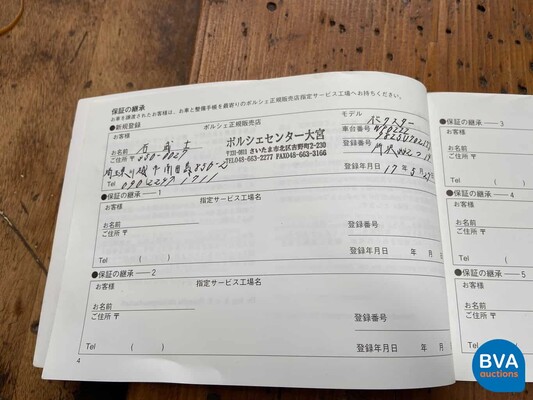 保証の継承
お車を譲渡されたお客様は、お車と整備手帳を最寄りのポルシェ正規販売店指定サービス工場へお持ちください。
●新規登録
お客様
ポルシェ正規販売店
モデル
お名前
ポルシェセンター大宮
車台番号
ご住所 〒 350-0027
さいたま市北区吉野町2-230
登録番号
TEL048-663-2277 FAX048-663-3166
登録年月日
Tel
●保証の継承 — 1
お客様
指定サービス工場名
お名前
ご住所 〒
登録番号
Tel ( )
登録年月日 年 月
●保証の継承 — 2
お客様
指定サービス工場名
お名前
ご住所 〒
登録番号
Tel ( )
登録年月日 年 月
4
●保証の継承 — 3
お客様
お名前
ご住所 〒
Tel
●保証の継承 — 4
お客様
お名前
ご住所 〒
Tel
●保証の継承 — 5
お客様
お名前
ご住所 〒
Tel
BVA
auctions